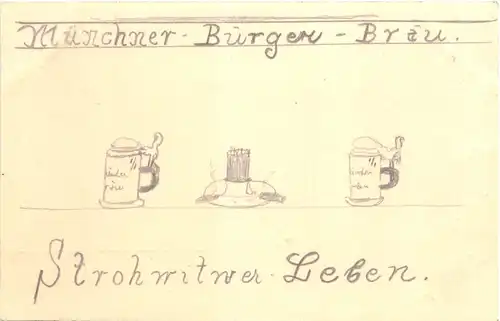 Münchner-Bürger-Bräu.
Strohwitwer-Leben.